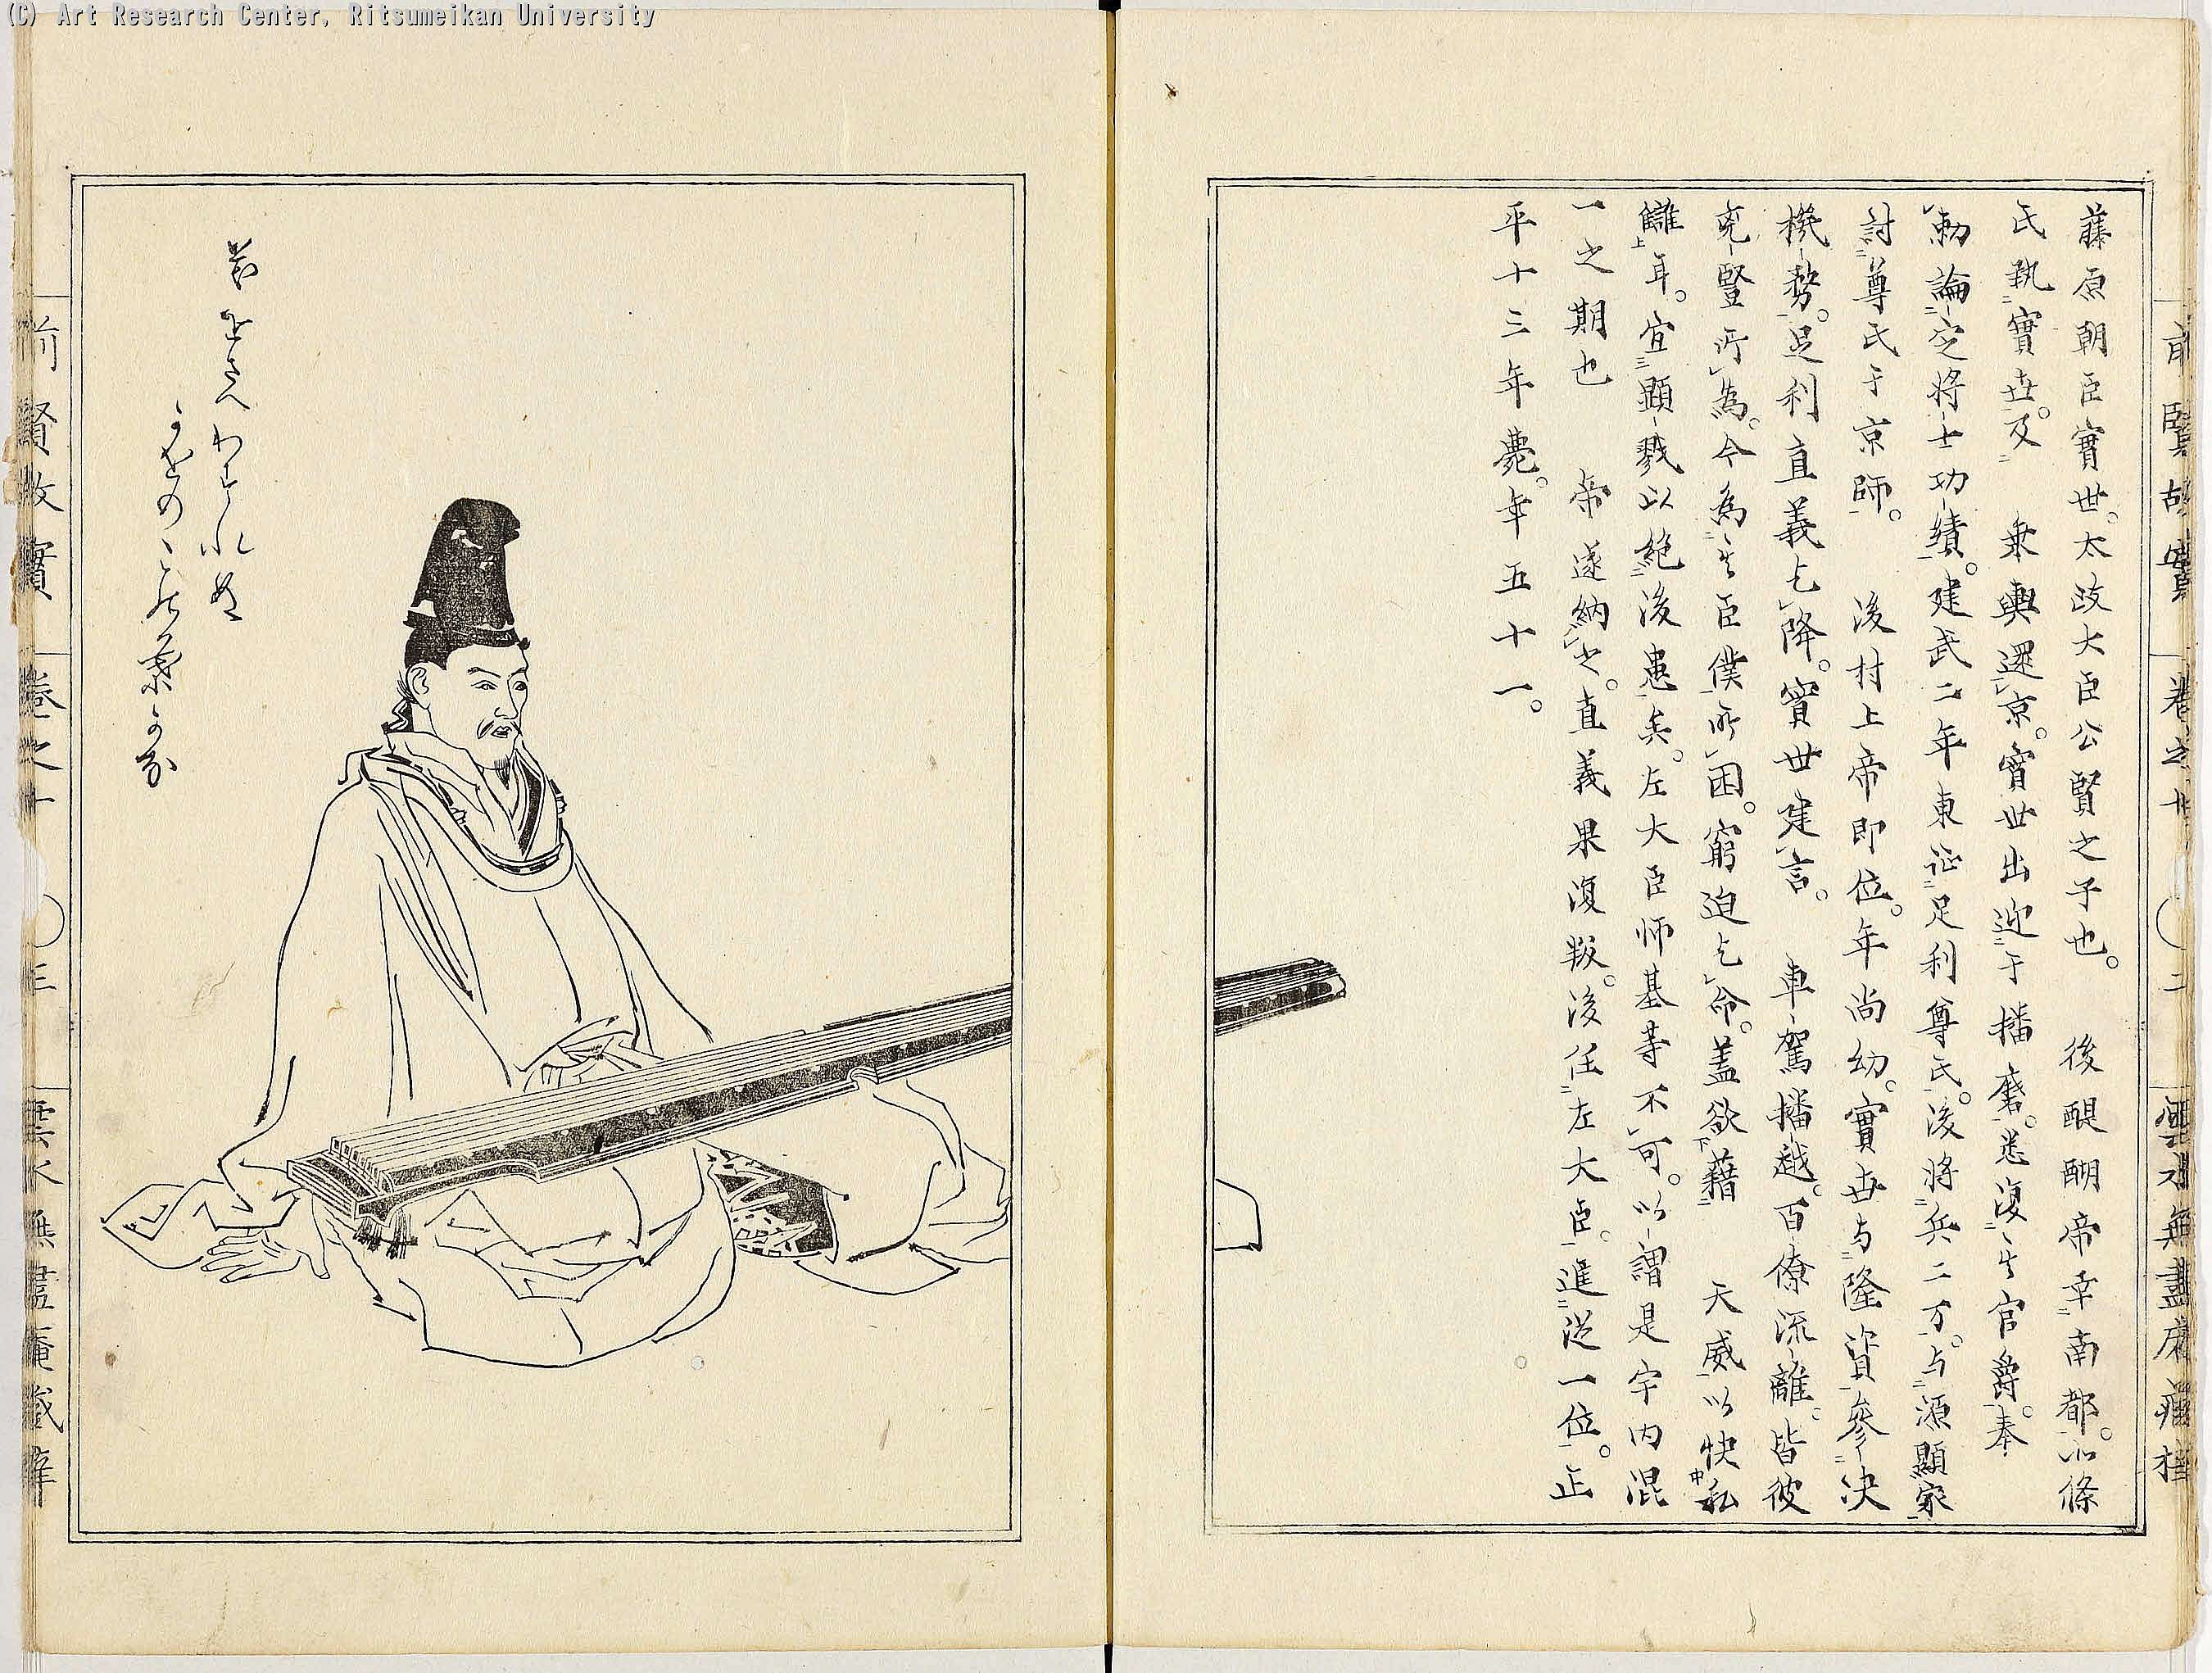 (C) Art Research Center, Ritsumeikan University
前賢故實 卷之十 二 雲水無盡庵藏梓
藤原朝臣實世。太政大臣公賢之子也。 後醍醐帝幸南都。北條
氏執實世。及 乗輿還京。實世出迎于播磨。悉復其官爵。奉
勅論定將士功績。建武二年東征足利尊氏。後將兵二万。与源顯家
討尊氏于京師。 後村上帝即位。年尚幼。實世与隆資參決
機務。足利直義乞降。實世建言。 車駕播越。百僚流離。皆彼
兇豎所為。今為其臣僕所困。窮迫乞命。蓋欲藉 天威以快私
讎耳。宜顕戮以絶後患矣。左大臣师基等不可。以謂是宇内混
一之期也 帝遂納之。直義果復叛。後任左大臣。進従一位。正
平十三年薨。年五十一。
前賢故實 卷之十 三 雲水無盡庵藏梓